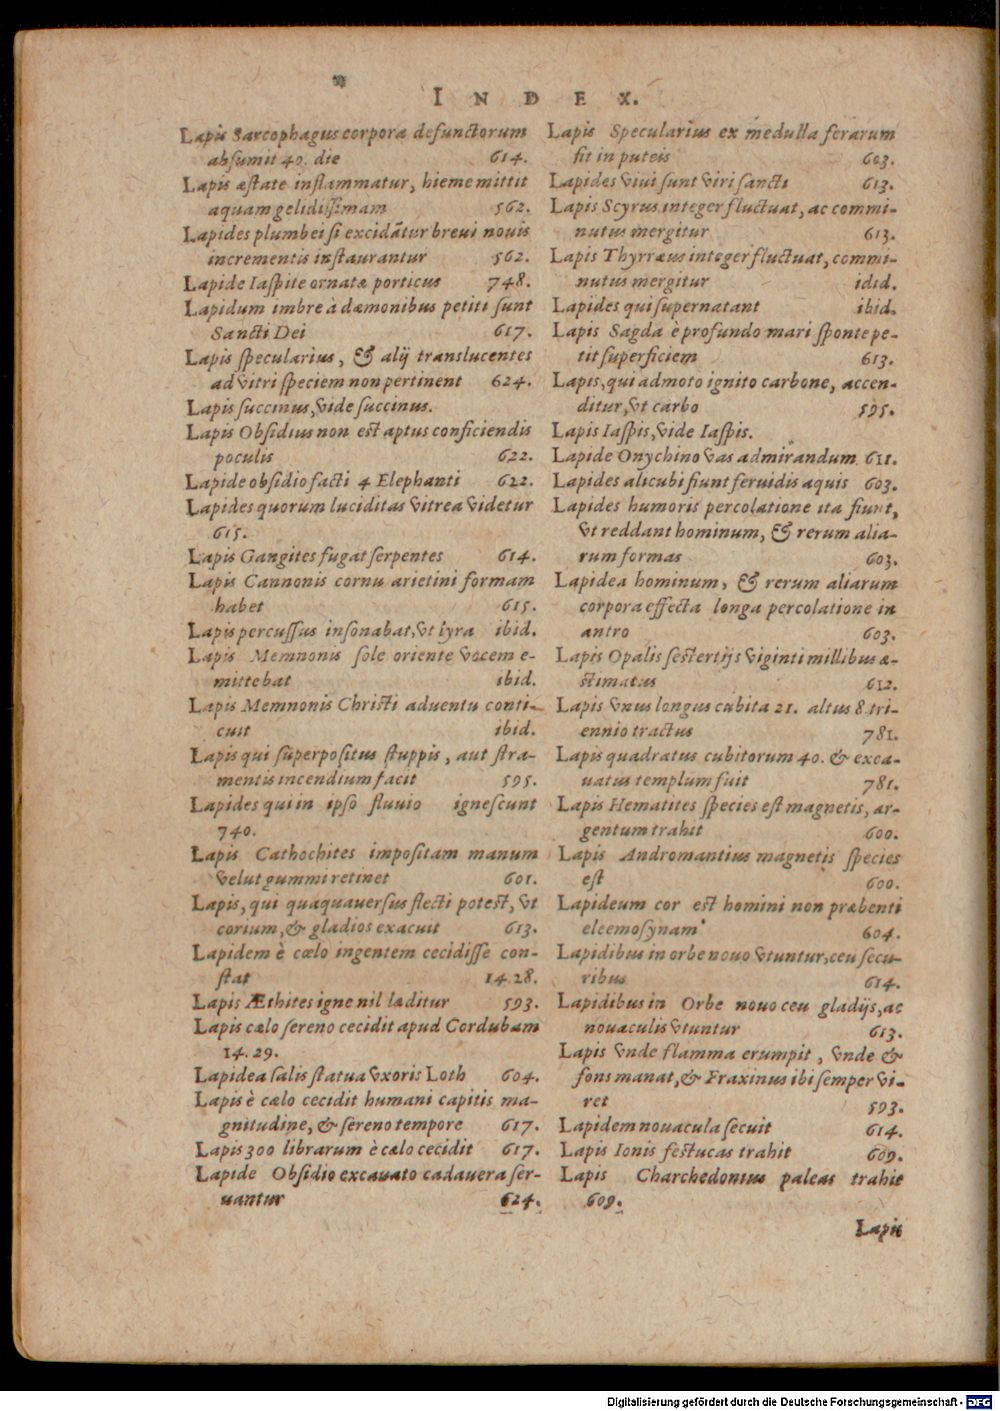 INDEX.
Lapis Sarcophagus corpora defunctorum
absumit 40. die 614.
Lapis æstate inflammatur, hieme mittit
aquam gelidissimam 562.
Lapides plumbei si excidãtur breui nouis
incrementis instaurantur 562.
Lapide Iaspite ornatæ porticus 748.
Lapidum imbre à dæmonibus petiti sunt
Sancti Dei 617.
Lapis specularius, & alij translucentes
ad vitri speciem non pertinent 624.
Lapis succinus, vide succinus.
Lapis Obsidius non est aptus conficiendis
poculis 622.
Lapide obsidio facti 4 Elephanti 622.
Lapides quorum luciditas vitrea videtur
615.
Lapis Gangites fugat serpentes 614.
Lapis Cannonis cornu arietini formam
habet 615.
Lapis percussus insonabat, vt lyra ibid.
Lapis Memnonis sole oriente vocem e-
mittebat ibid.
Lapis Memnonis Christi aduentu conti-
cuit ibid.
Lapis qui superpositus stuppis, aut stra-
mentis incendium facit 595.
Lapides qui in ipso fluuio ignescunt
740.
Lapis Cathochites impositam manum
velut gummi retinet 601.
Lapis, qui quaquauersius flecti potest, vt
corium, & gladios exacuit 613.
Lapidem è cælo ingentem cecidisse con-
stat 14.28.
Lapis Æthites igne nil læditur 593.
Lapis cælo sereno cecidit apud Cordubam
14.29.
Lapidea salis statua vxoris Loth 604.
Lapis è cælo cecidit humani capitis ma-
gnitudine, & sereno tempore 617.
Lapis 300 librarum è cælo cecidit 617.
Lapide Obsidio excauato cadauera ser-
uantur 624.
Lapis Specularius ex medulla ferarum
fit in puteis 603.
Lapides viui sunt viri sancti 613.
Lapis Scyrus integer fluctuat, ac commi-
nutus mergitur 613.
Lapis Thyrræus integer fluctuat, commi-
nutus mergitur idid.
Lapides qui supernatant ibid.
Lapis Sagda è profundo mari sponte pe-
tit superficiem 613.
Lapis, qui admoto ignito carbone, accen-
ditur, vt carbo 595.
Lapis Iaspis, vide Iaspis.
Lapide Onychino vas admirandum 611.
Lapides alicubi fiunt feruidis aquis 603.
Lapides humoris percolatione ita fiunt,
vt reddant hominum, & rerum alia-
rum formas 603.
Lapidea hominum, & rerum aliarum
corpora effecta longa percolatione in
antro 603.
Lapis Opalis sestertijs viginti millibus æ-
stimatus 612.
Lapis vnus longus cubita 21. altus 8. tri-
ennio tractus 781.
Lapis quadratus cubitorum 40. & exca-
uatus templum fuit 781.
Lapis Hematites species est magnetis, ar-
gentum trahit 600.
Lapis Andromantius magnetis species
est 600.
Lapideum cor est homini non præbenti
eleemosynam 604.
Lapidibus in orbe nouo vtuntur, ceu secu-
ribus 614.
Lapidibus in Orbe nouo ceu gladijs, ac
nouaculis vtuntur 613.
Lapis vnde flamma erumpit, vnde &
fons manat, & Fraxinus ibi semper vi-
ret 593.
Lapidem nouacula secuit 614.
Lapis Ionis festucas trahit 609.
Lapis Charchedonius paleas trahit
609.
Lapis
Digitalisierung gefördert durch die Deutsche Forschungsgemeinschaft - DFG